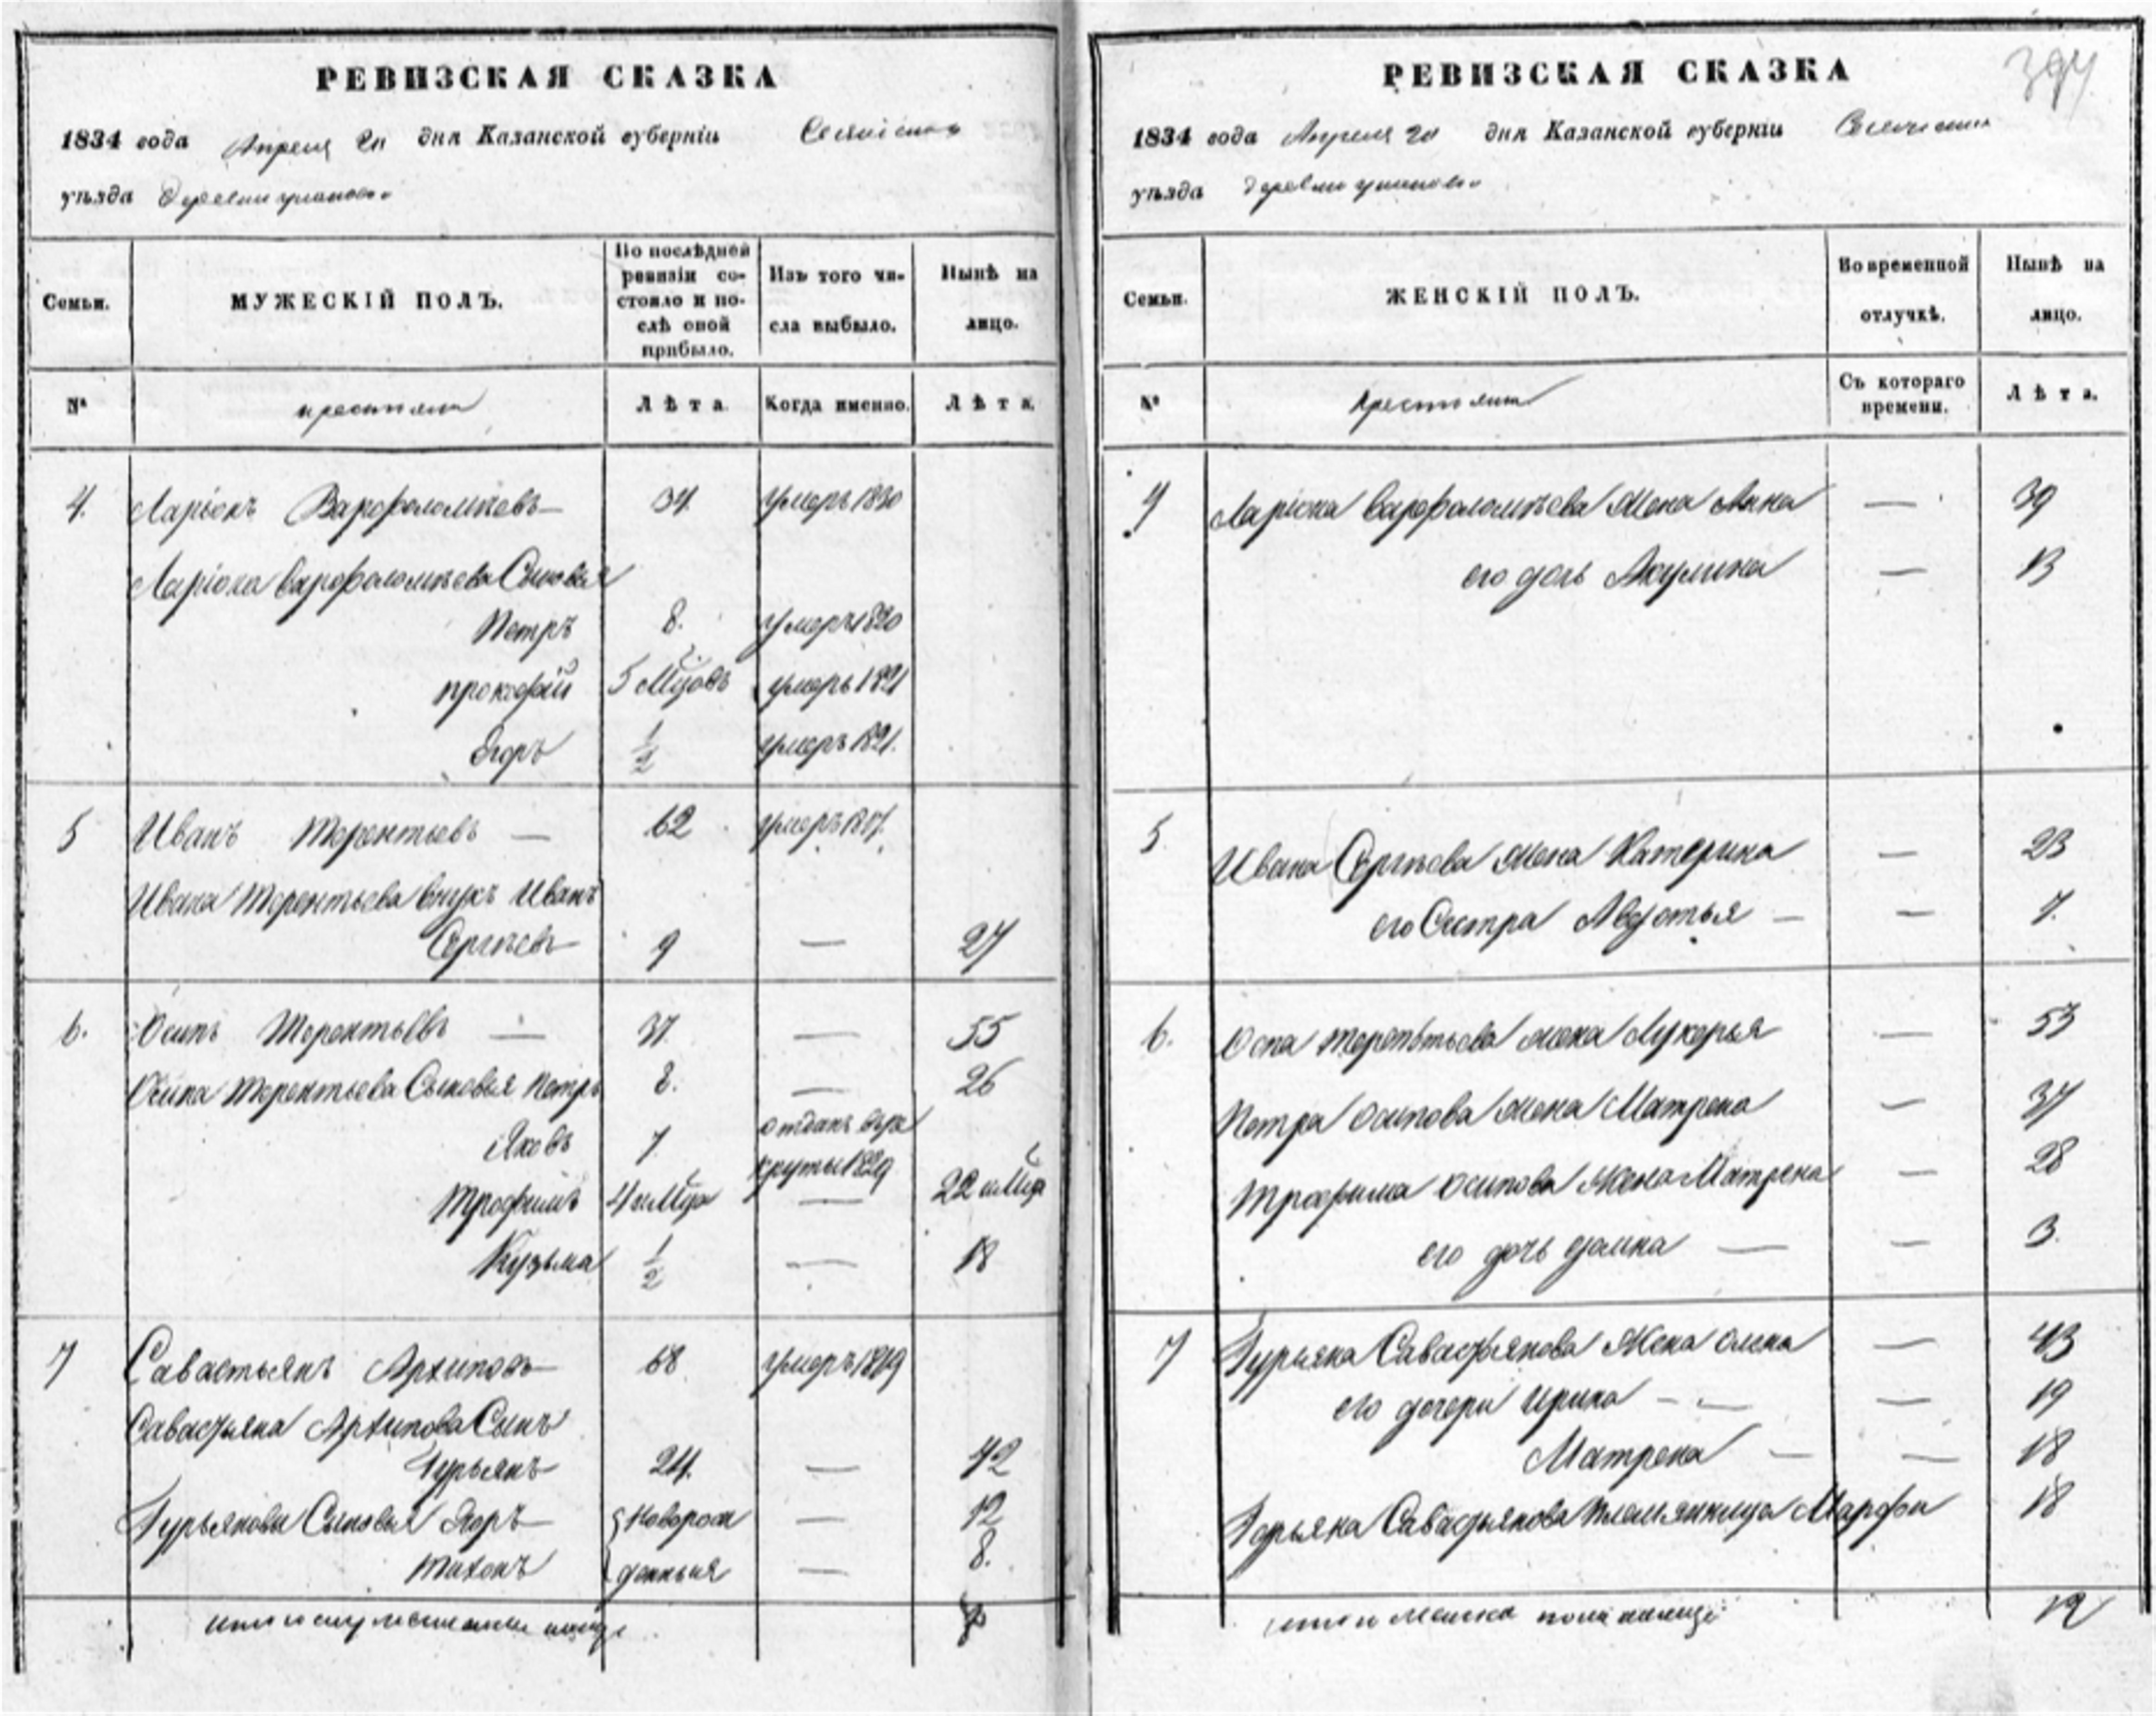 РЕВИЗСКАЯ СКАЗКА
1834 года Апреля 20 дня Казанской губерніи
уѣзда Деревни
Семьи.
МУЖЕСКІЙ ПОЛЪ.
По послѣдней ревизіи состояло и послѣ оной прибыло.
Изъ того числа выбыло.
Нынѣ на лицо.
№
крестьяне
Лѣта.
Когда именно.
Лѣта.
4. Ларіонъ Варфоломѣевъ — 34. умеръ 1830
Ларіона Варфоломѣева Сыновья
Петръ 8. умеръ 1820
Прокофій 5 умеръ 1821
Егоръ 1/2 умеръ 1821.
5 Иванъ Терентьевъ — 62 умеръ
Ивана Терентьева внукъ Иванъ
Сергѣевъ 9 — 27
6. Осипъ Терентьевъ — 37. — 55
Осипа Терентьева Сыновья Петръ 8. — 26
Яковъ 7 отданъ въ ре
круты 1829
Трофимъ 4 — 22
Кузьма 1/2 — 18
7 Савастьянъ Архиповъ 68 умеръ 1819
Савастьяна Архипова Сынъ
Гурьянъ 24. — 42
Гурьяновы Сыновья Егоръ новорож — 12
Тихонъ денныя — 8.
РЕВИЗСКАЯ СКАЗКА
394
1834 года Апреля 20 дня Казанской губерніи
уѣзда деревни
Семьи.
ЖЕНСКІЙ ПОЛЪ.
Во временной отлучкѣ.
Нынѣ на лицо.
№
Съ котораго времени.
Лѣта.
4 Ларіона Варфоломѣева Жена Анна — 39
его дочь Акулина — 13
5 Ивана Сергѣева жена Катерина — 23
его Сестра Авдотья — — 7.
6. Осипа Терентьева жена Лукерья — 53
Петра Осипова жена Матрена — 37
Трофима Осипова Жена Матрена — 28
его дочь Домна — — 3.
7 Гурьяна Савастьянова Жена Олена — 43
его дочери Ирина — — 19
Матрена — — 18
Гурьяна Савастьянова племянница Марфа 18
12